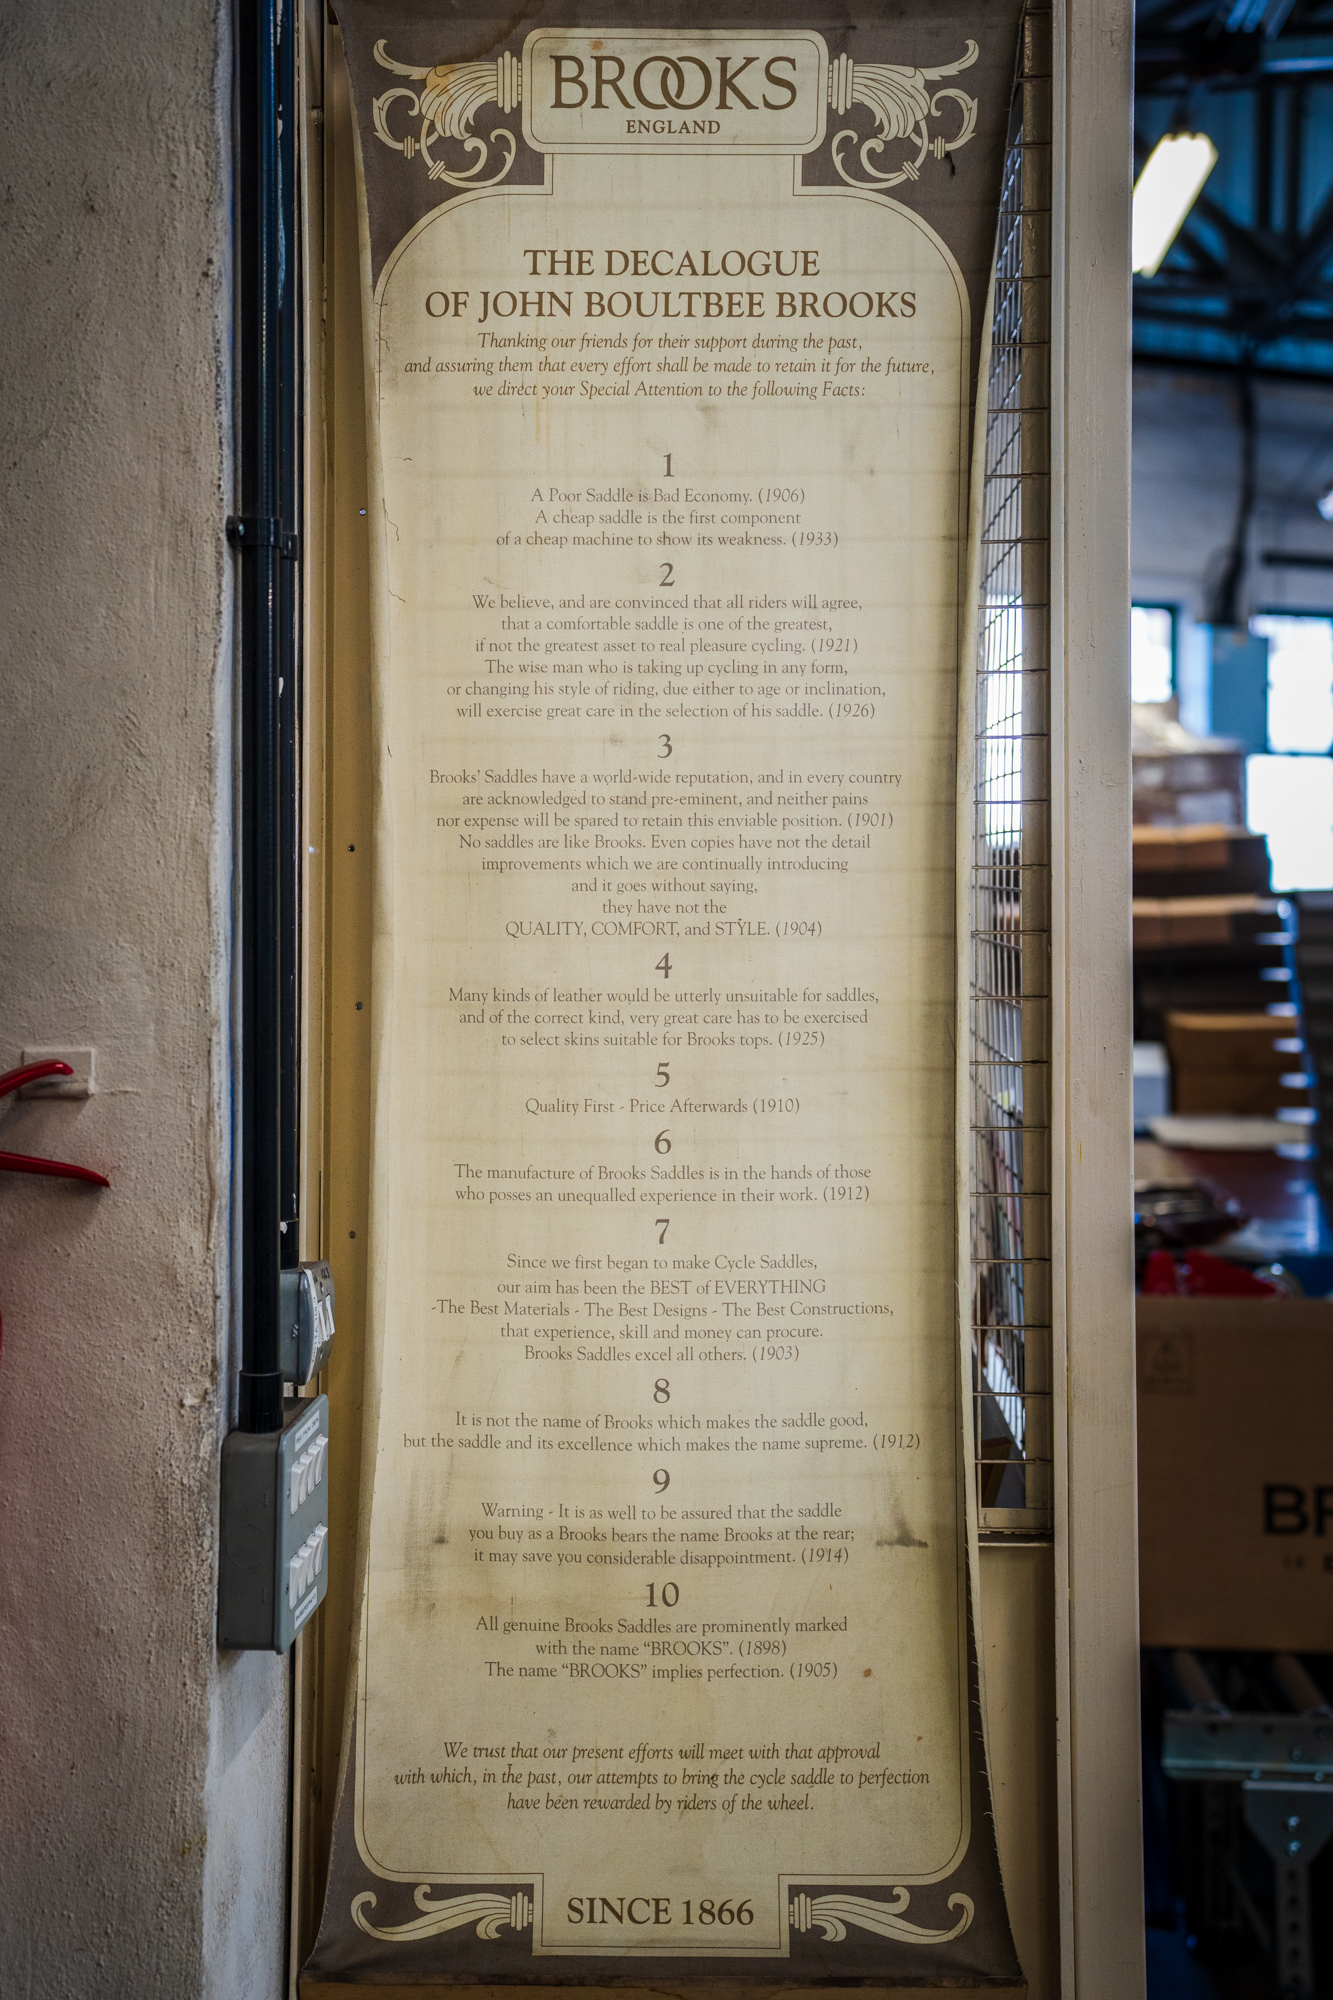 BROOKS
ENGLAND
THE DECALOGUE
OF JOHN BOULTBEE BROOKS
Thanking our friends for their support during the past,
and assuring them that every effort shall be made to retain it for the future,
we direct your Special Attention to the following Facts:
1
A Poor Saddle is Bad Economy. (1906)
A cheap saddle is the first component
of a cheap machine to show its weakness. (1933)
2
We believe, and are convinced that all riders will agree,
that a comfortable saddle is one of the greatest,
if not the greatest asset to real pleasure cycling. (1921)
The wise man who is taking up cycling in any form,
or changing his style of riding, due either to age or inclination,
will exercise great care in the selection of his saddle. (1926)
3
Brooks' Saddles have a world-wide reputation, and in every country
are acknowledged to stand pre-eminent, and neither pains
nor expense will be spared to retain this enviable position. (1901)
No saddles are like Brooks. Even copies have not the detail
improvements which we are continually introducing
and it goes without saying,
they have not the
QUALITY, COMFORT, and STYLE. (1904)
4
Many kinds of leather would be utterly unsuitable for saddles,
and of the correct kind, very great care has to be exercised
to select skins suitable for Brooks tops. (1925)
5
Quality First - Price Afterwards (1910)
6
The manufacture of Brooks Saddles is in the hands of those
who posses an unequalled experience in their work. (1912)
7
Since we first began to make Cycle Saddles,
our aim has been the BEST of EVERYTHING
-The Best Materials - The Best Designs - The Best Constructions,
that experience, skill and money can procure.
Brooks Saddles excel all others. (1903)
8
It is not the name of Brooks which makes the saddle good,
but the saddle and its excellence which makes the name supreme. (1912)
9
Warning - It is as well to be assured that the saddle
you buy as a Brooks bears the name Brooks at the rear;
it may save you considerable disappointment. (1914)
10
All genuine Brooks Saddles are prominently marked
with the name “BROOKS”. (1898)
The name “BROOKS” implies perfection. (1905)
We trust that our present efforts will meet with that approval
with which, in the past, our attempts to bring the cycle saddle to perfection
have been rewarded by riders of the wheel.
SINCE 1866